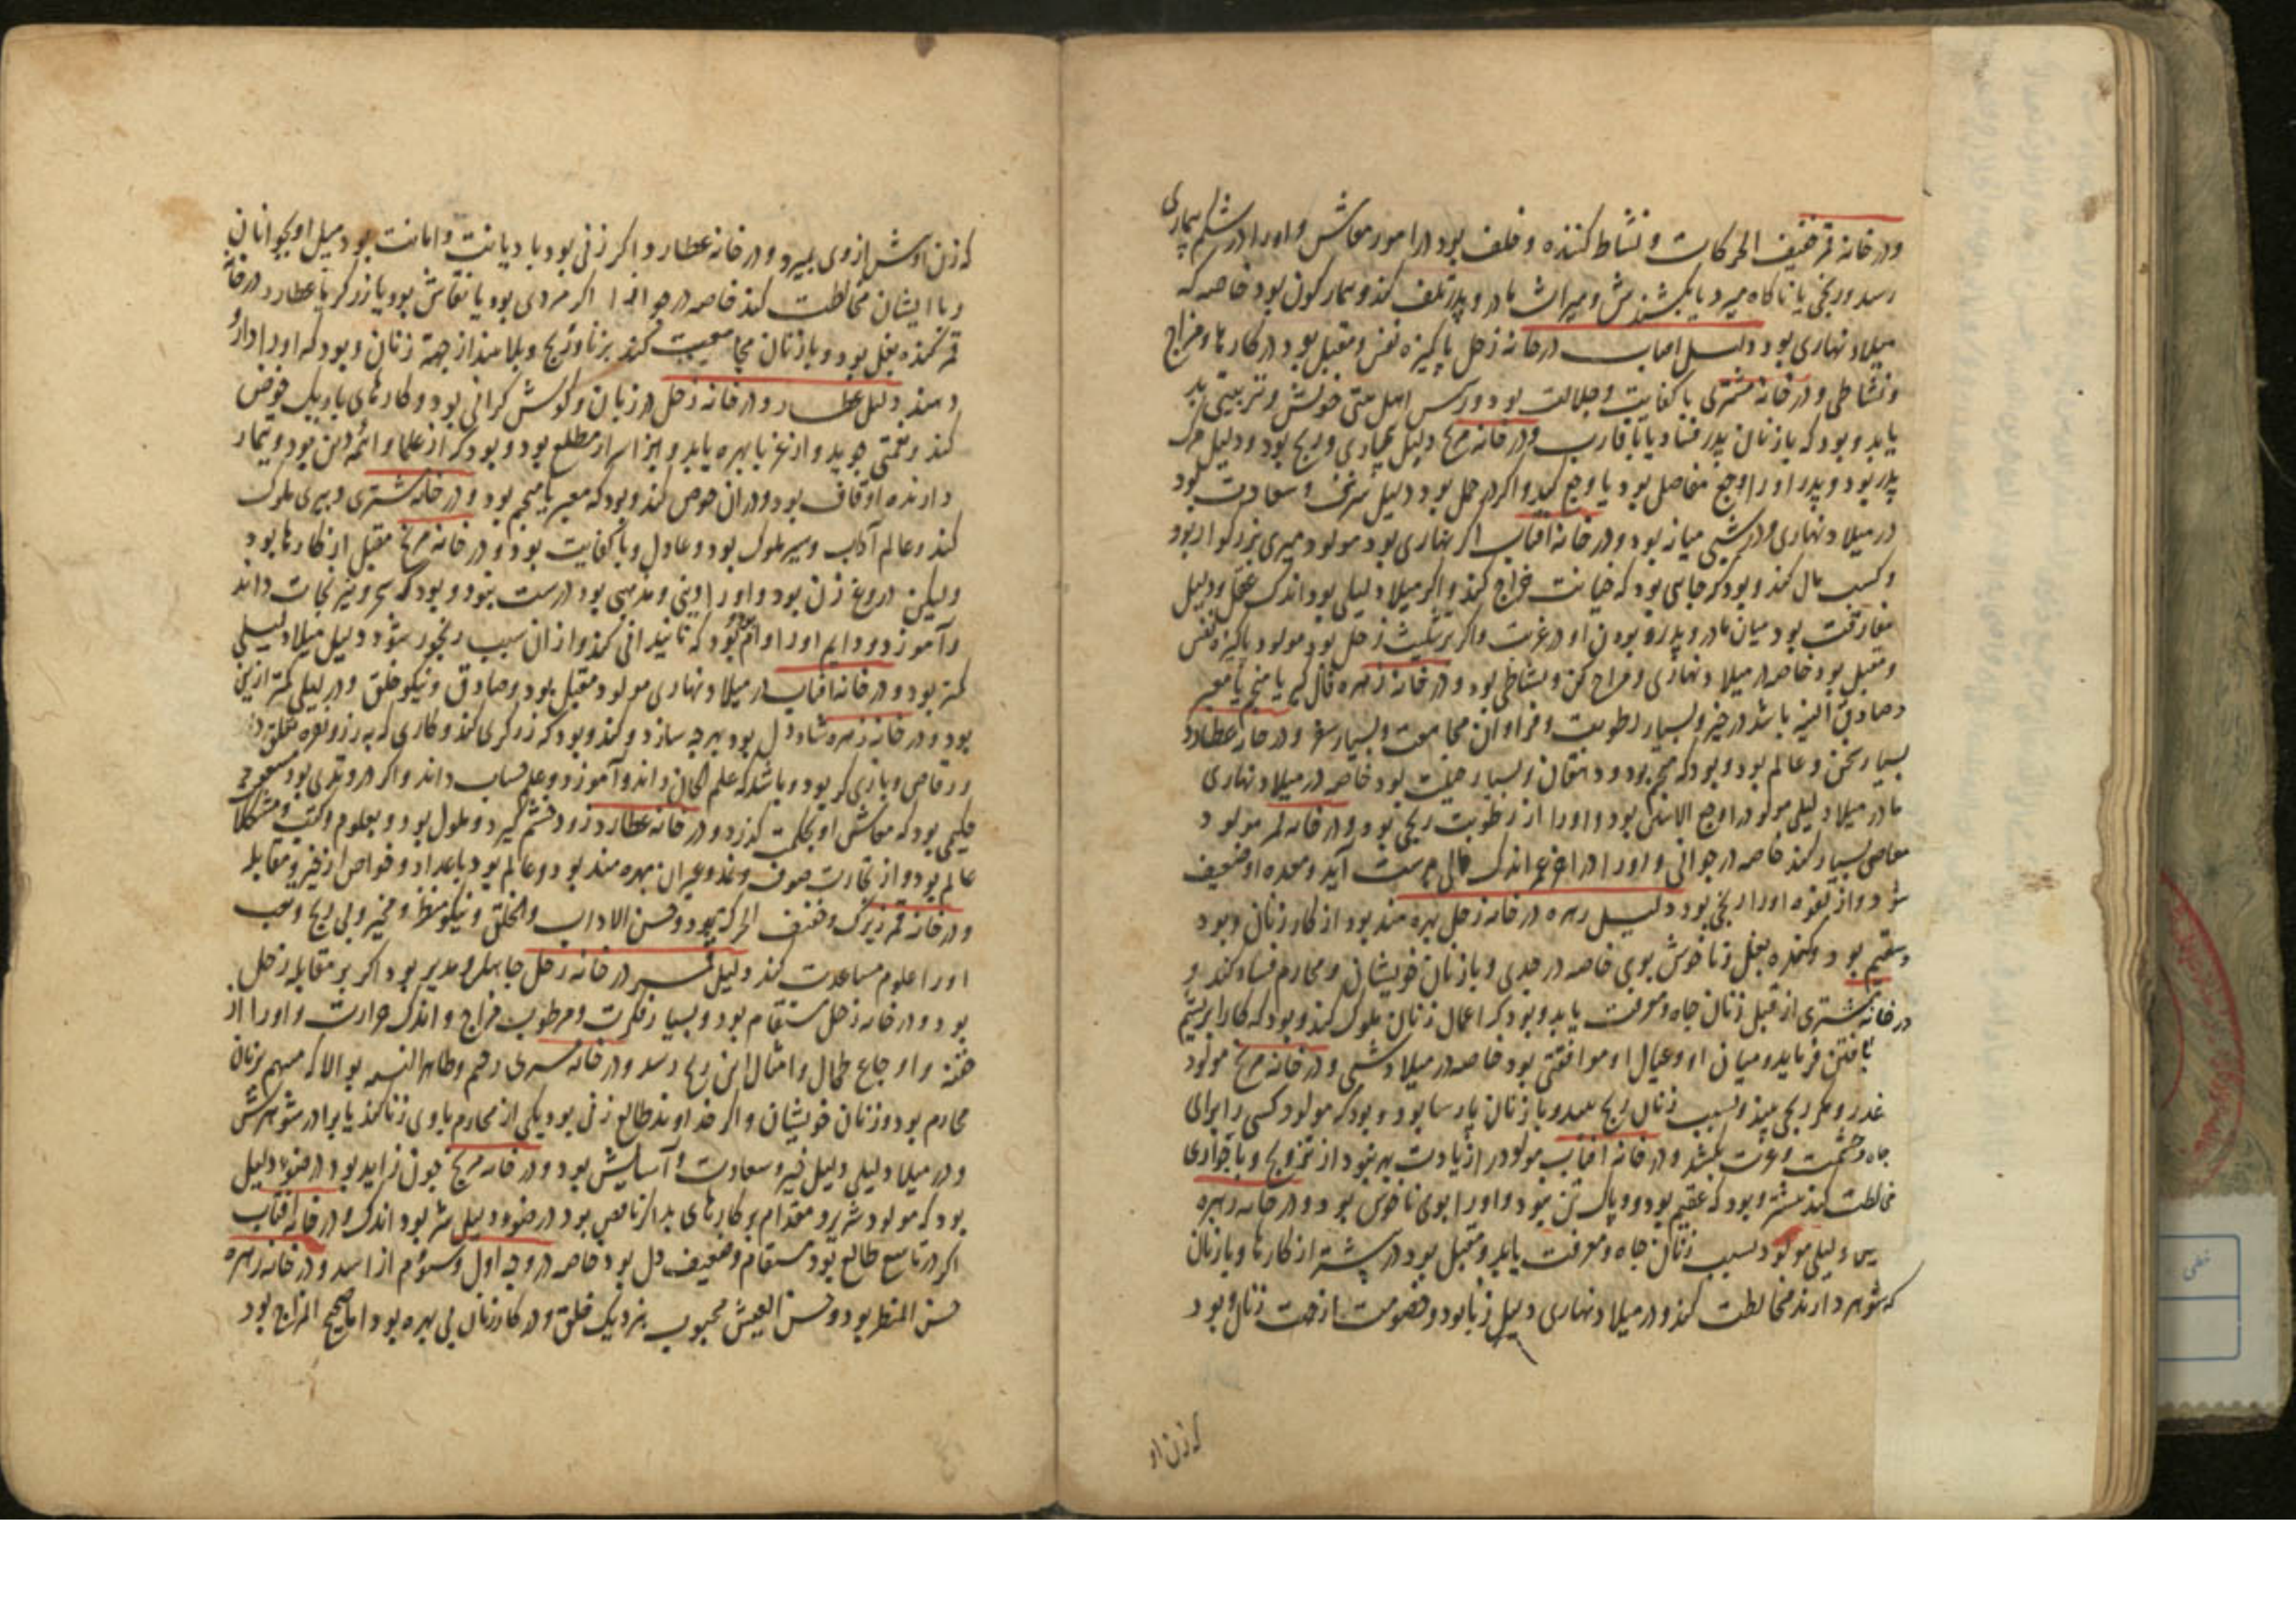 و در خانه قمر خفیف الحرکات و نشاط کننده و خلف بود در امور معاش و او را در شکم بیماری
رسد و رنجی یا ناکاه میرد یا بکشندش و میراث مادر و پدر تلف کند و بیمار کون بود خاصه که
میلاد نهاری بود دلیل افتاب در خانه زحل پاکیزه نفس و مقبل بود در کارها و مزاج
و نشاطی و در خانه مشتری با کفایت و جلالت بود و رئیس اهل بیتی خویش و تربیتی بد
یابد و بود که با زنان پدر فساد یا با قارب و در خانه مریخ دلیل بیماری و رنج بود و دلیل مرک
پدر بود و پدر او را وجع مفاصل بود یا وجع کبد و اکر در حمل بود دلیل شرف و سعادت بود
در میلاد نهاری و در شبی میانه بود و در خانه افتاب اکر نهاری بود مولود میری بزرکوار بود
و کسب مال کند و بود که جابی بود که خیانت خراج کند و اکر میلاد لیلی بود اندک عقل و دلیل
مفارقت بود میان مادر و پدر و بودن او در غربت و اکر بتثلیث زحل بود مولود پاکیزه نفس
و مقبل بود خاصه در میلاد نهاری و مزاح کن و نشاطی بود و در خانه زهره فال کیر یا منجم یا معبر
و صادق النیه باشد در خیر و بسیار رطوبت و فراوان مجامعت و بسیار سفر و در خانه عطارد
بسیار سخن و عالم بود و بود که منجم بود و دهقان و بسیار حیلت بود خاصه در میلاد نهاری
ما در میلاد لیلی مولود را وجع الاسنان بود و او را از رطوبت رنجی بود و در خانه قمر مولود
معاصی بسیار کند خاصه در جوانی و او را در اخر عمر اندک مالی بدست آید و معده او ضعیف
شود و از لقوه او را رنجی بود دلیل زهره در خانه زحل بهره مند بود از کار زنان و بود
و سقیم بود و کنده بغل و ناخوش بوی خاصه در جدی و با زنان خویشان و محارم فساد کند و
در خانه مشتری از قبل زنان جاه و معرفت یابد و بود که اعمال زنان ملوک کند و بود که کار ابریشم
بافتن فرماید و میان او و عیال او موافقتی بود خاصه در میلاد شبی و در خانه مریخ مولود
غدر و مکر رنجی بیند و بسبب زنان رنج بیند و با زنان پارسا بود و بود که مولود کسی را برای
جاه و حشمت و عزت بکشد و در خانه افتاب مولود را زیادت بهره نبود از تزویج و با جواری
مخالطت کند بیشتر و بود که عقیم بود و پاک تن نبود و او را بوی ناخوش بود و در خانه زهره
و لیلی مولود بسبب زنان جاه و معرفت یابد و مقبل بود در بیشتر از کارها و با زنان
که شوهر دارند مخالطت کند و در میلاد نهاری دلیل زنا بود و خصومت از جهت زنان و بود
که زن او
که زن اوش از وی بمیرد و در خانه عطارد اکر زنی بود با دیانت و امانت بود میل او بجوانان
و با ایشان مخالطت کند خاصه در جوزا اکر مردی بود یا نقاش بود یا زرکر یا عطار و در خانه
قمر کنده بغل بود و با زنان مجامعت کند بزنا و رنج و بلا بیند از جهة زنان و بود که او را دارو
دهند دلیل عطارد در خانه زحل در زبان و کوش کرانی بود و کارهای باریک خوض
کند و نعمتی جوید و از بهره یابد و بر اسرار مطلع بود و بود که از علما و ائمه دین بود و بیمار
دارنده اوقاف بود و در ان خوض کند و بود که معبر یا منجم بود و در خانه مشتری دبیری ملوک
کند و عالم آداب و سیر ملوک بود و عادل و با کفایت بود و در خانه مریخ مقبل از کارها بود
ولیکن دروغ زن بود و او را دینی و مذهبی بود درست نبود و بود که سحر و نیرنجات داند
و آموزد و دایم او را وام بود که تا نیزانی کند و از ان سبب رنجور شود و دلیل میلاد لیلی
کمتر بود و در خانه افتاب در میلاد نهاری مولود مقبل بود و صادق و نیکو خلق و در لیلی کمتر ازین
بود و در خانه زهره شاد دل بود بهر چه سازد و کند و بود که زرکری کند و کاری که به زر و نقره تعلق دارد
و رقاص و بازی کر بود و باشد که علم الحان داند و آموزد و علم حساب داند و اکر در وتدی بود
حکیمی بود که معاش او بحکمت کذرد و در خانه عطارد زود خشم کیرد و ملول بود و بعلوم و کتب و مشکلات
عالم بود و از تجارت صوف و غیر ان بهره مند بود و عالم بود باعداد و خواص از جبر و مقابله
و در خانه قمر زیرک و خفیف الحرکة بود و حسن الاداب و الخلق و نیکو منظر و مخیر و بی رنج و تعب
او را علوم مساعدت کند دلیل قمر در خانه زحل جاهل و مدبر بود اکر بر مقابله زحل
بود و در خانه زحل مستقام بود و بسیار فکرت و مرطوب مزاج و اندک حرارت و او را از
فتنه و اوجاع طحال و امثال این رنج رسد و در خانه مشتری رحیم و طاهر النسمه بود الا که متهم بزنان
محارم بود و زنان خویشان و اکر خداوند طالع زنی بود یکی از محارم با وی زنا کند یا برادر شوهرش
و در میلاد لیلی دلیل خیر و سعادت و آسایش بود و در خانه مریخ چون زاید بود در ضوء دلیل
بود که مولود شریر و مقدام بر کارهای بد اکر ناقص بود در ضوء و دلیل شر بود اندک و در خانه افتاب
اکر در تاسع طالع بود مستقام و ضعیف دل بود خاصه در وجه اول و سوم از اسد و در خانه زهره
حسن المنظر بود و حسن العیش محبوب بنزدیک خلق و در کار زنان بی بهره بود اما صحیح المزاج بود